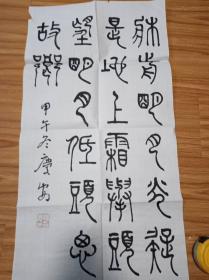 牀前明月光疑
是地上霜舉頭
望明月低頭思
故鄉
甲午冬慶